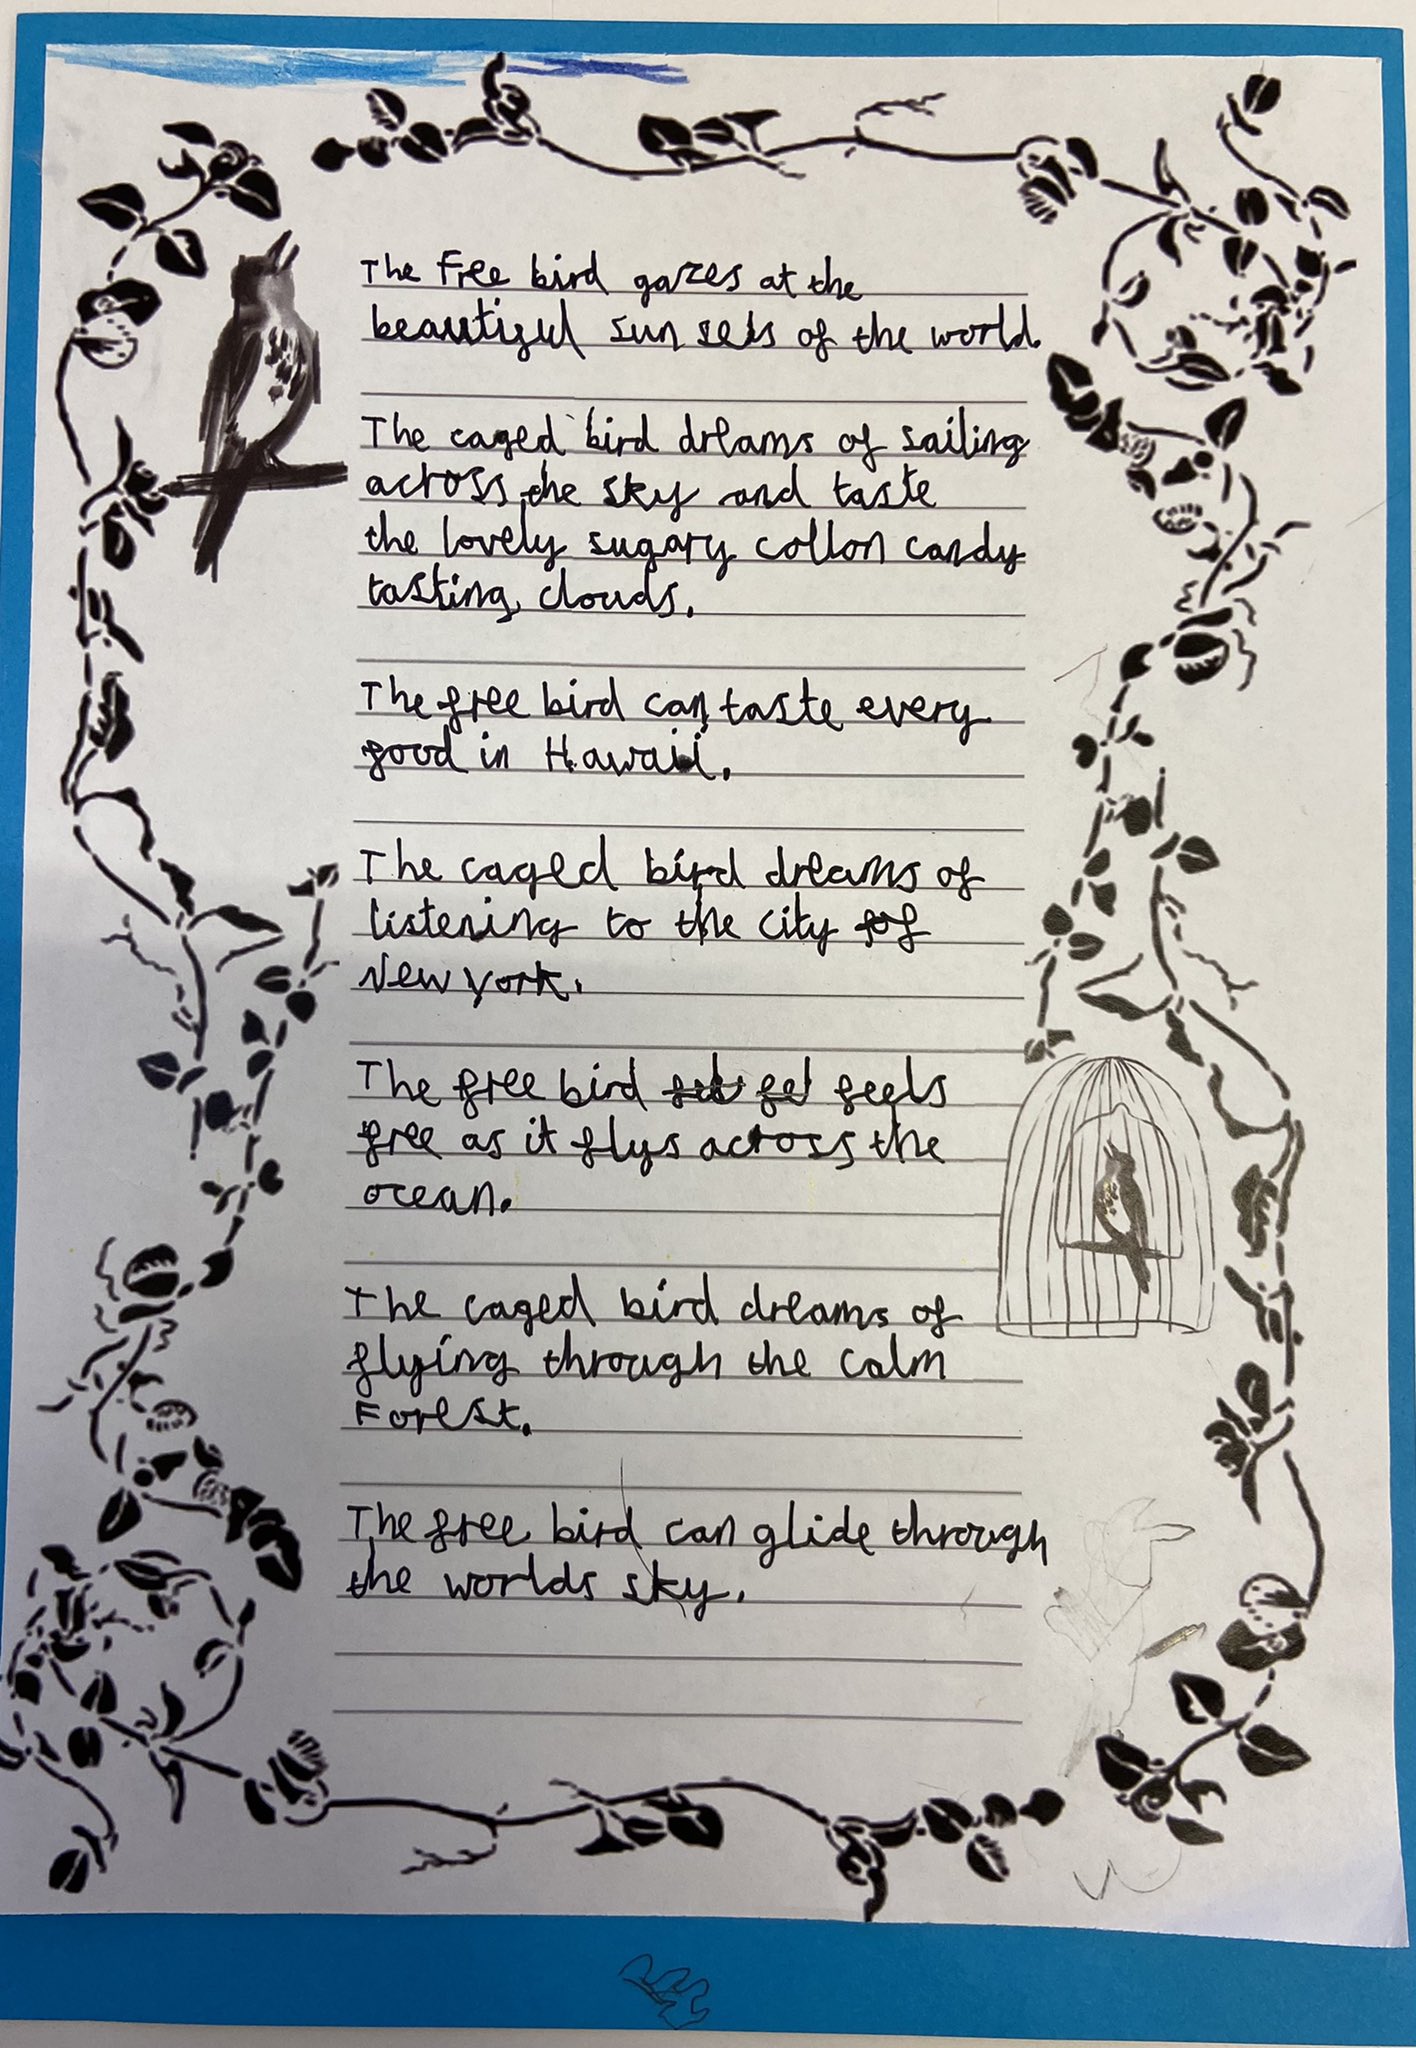 The Free bird gazes at the
beautiful sun sets of the world.
The caged bird dreams of sailing
across the sky and taste
the lovely sugary cotton candy
tasting clouds.
The free bird can taste every
food in Hawaii.
The caged bird dreams of
listening to the city of
New york.
The free bird feels
free as it flys across the
ocean.
The caged bird dreams of
flying through the calm
Forest.
The free bird can glide through
the worlds sky.